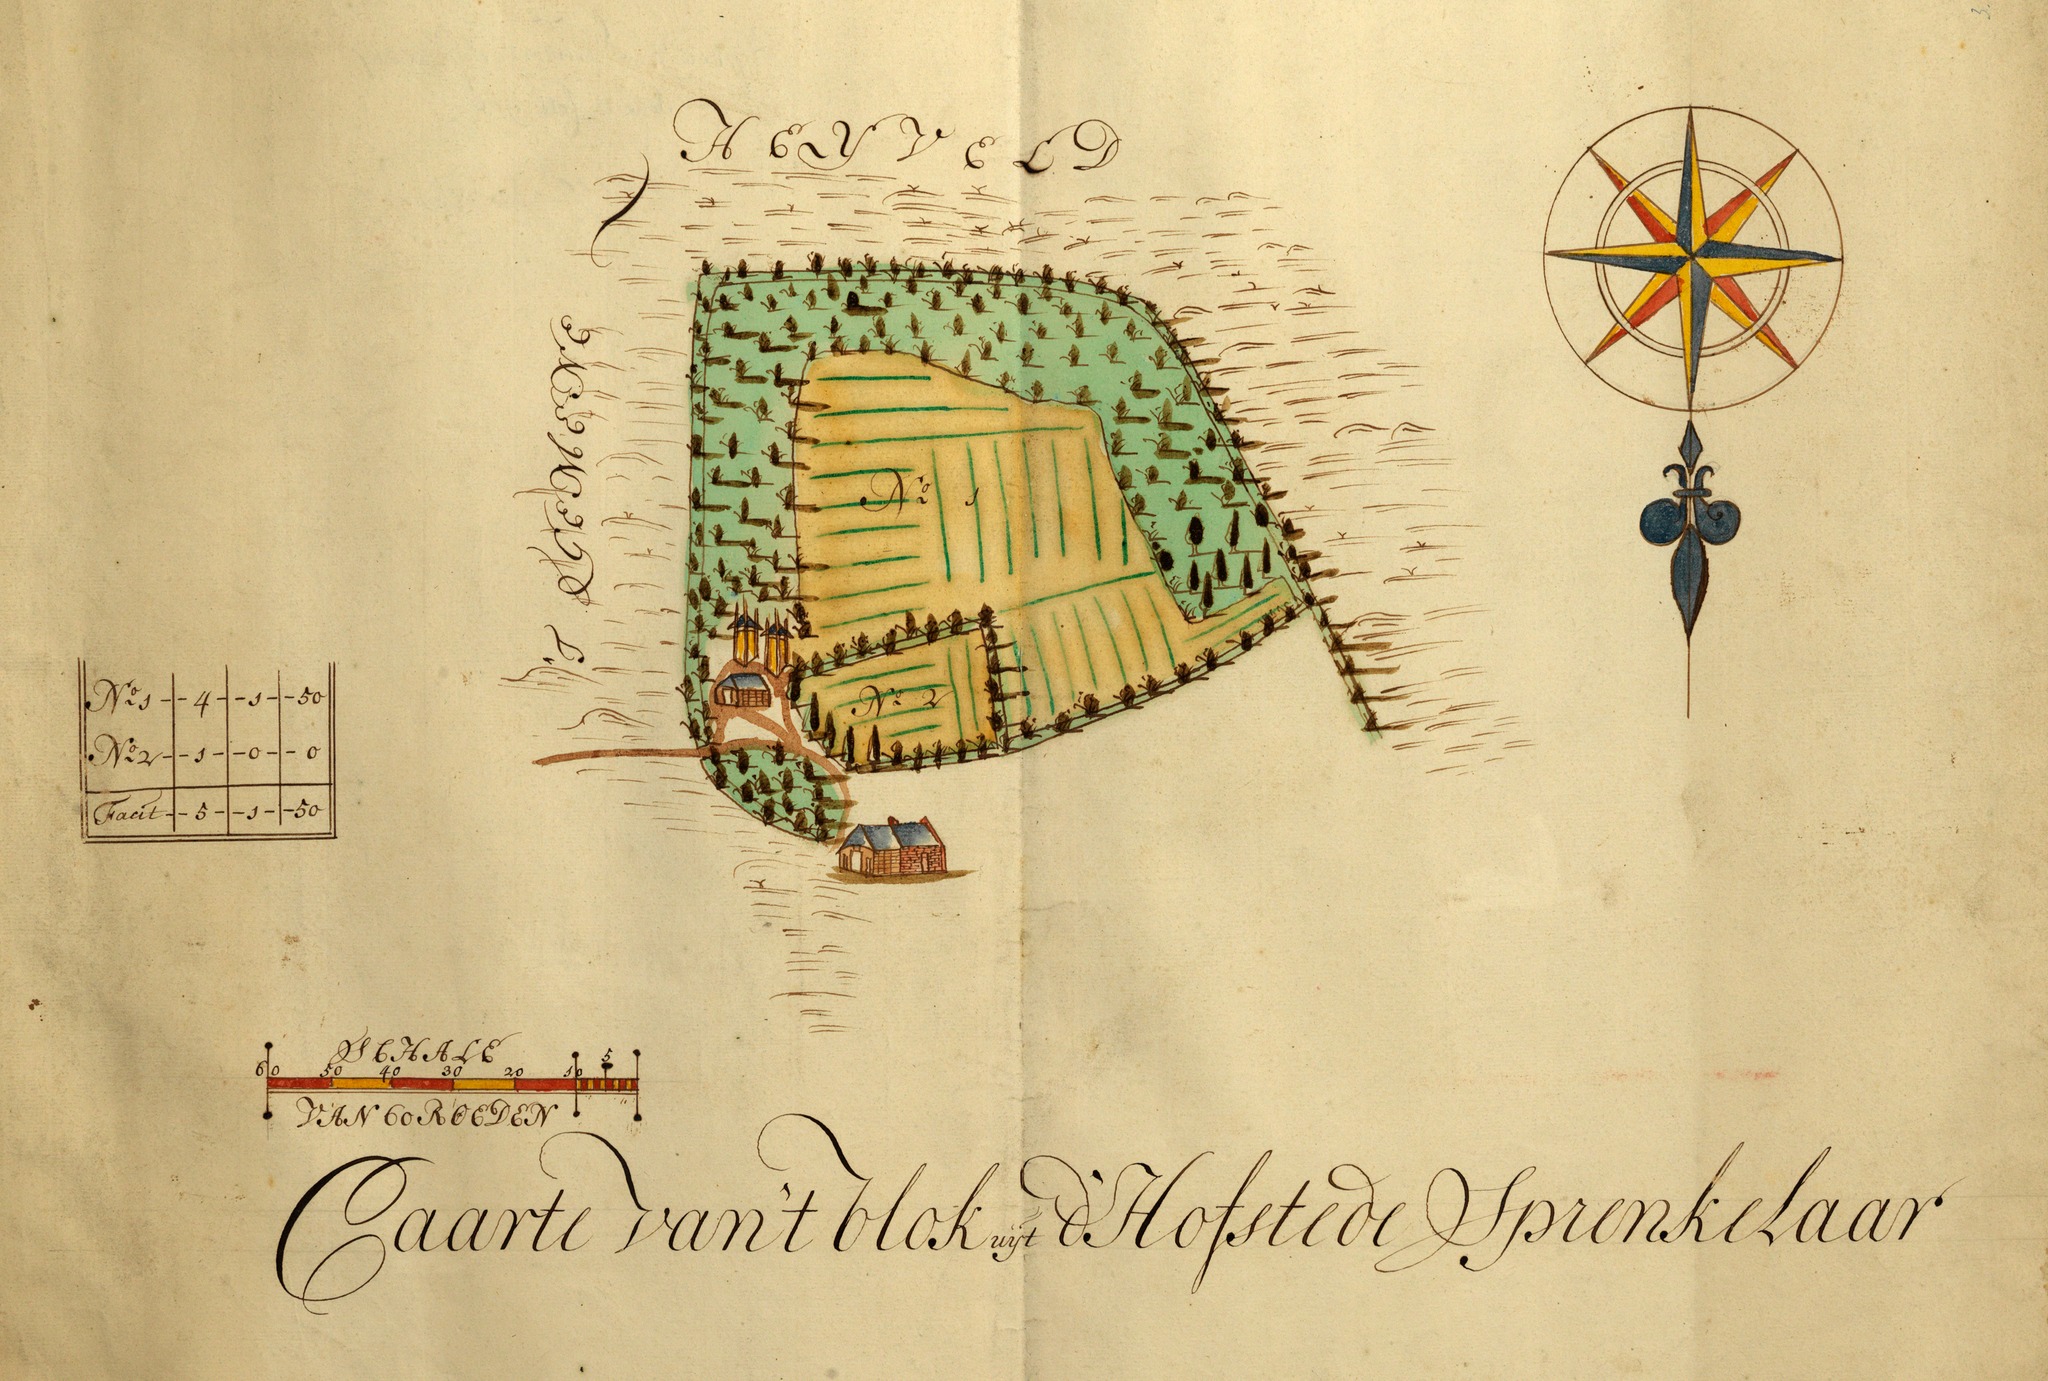 3.
HEYVELD
'T GEEMEENE
No 1
No 2
No 1 - 4 - 1 - 50
No 2 - 1 - 0 - 0
Facit - 5 - 1 - 50
SCHALE
60 50 40 30 20 10 5
VAN 60 ROEDEN
Caarte van't blok uijt d'Hofstede Sprenkelaar